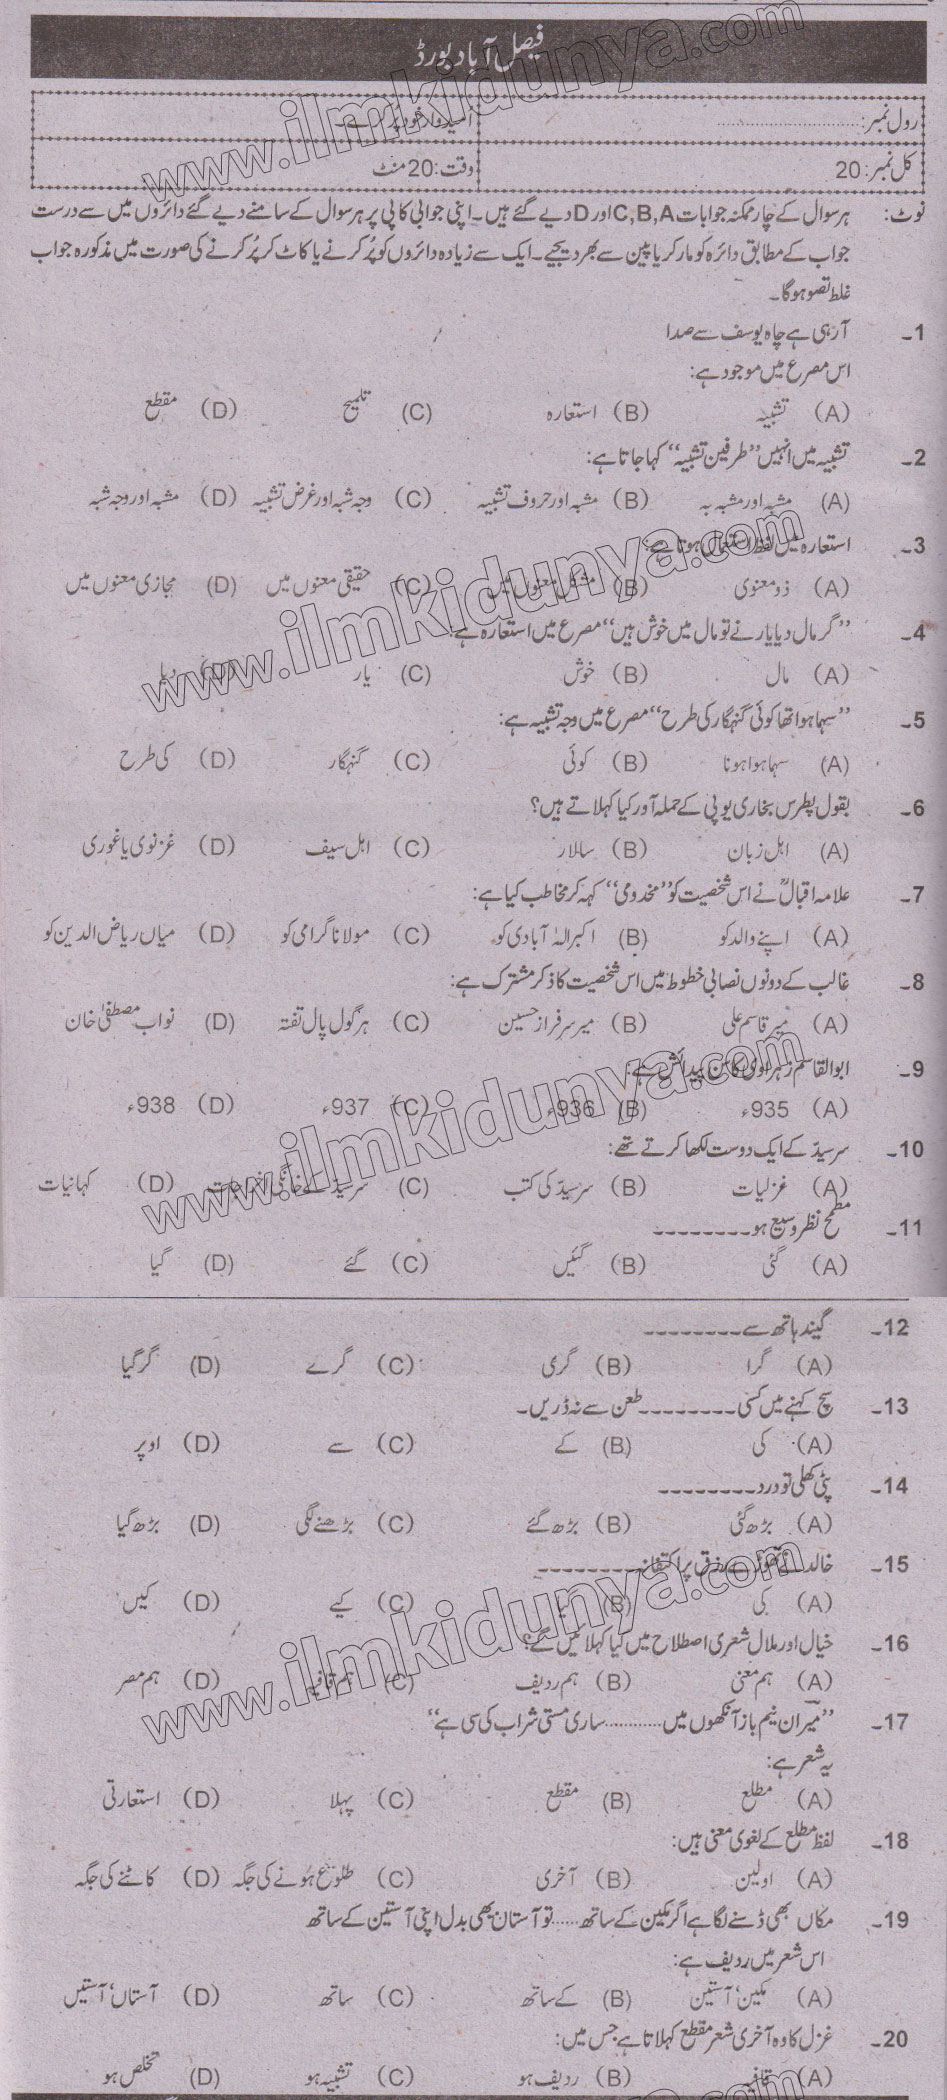 فیصل آباد بورڈ
رول نمبر:
کل نمبر: 20 وقت: 20 منٹ
نوٹ: ہر سوال کے چار ممکنہ جوابات C,B,A اور D دیے گئے ہیں۔ اپنی جوابی کاپی پر ہر سوال کے سامنے دیے گئے دائروں میں سے درست
جواب کے مطابق دائرہ کو مارکر یا پین سے بھر دیجیے۔ ایک سے زیادہ دائروں کو پُر کرنے یا کاٹ کر پُر کرنے کی صورت میں مذکورہ جواب
غلط تصو ہوگا۔
1۔ آ رہی ہے چاہ یوسف سے صدا
اس مصرع میں موجود ہے:
(A) تشبیہ (B) استعارہ (C) تلمیح (D) مقطع
2۔ تشبیہ میں انہیں ”طرفین تشبیہ“ کہا جاتا ہے:
(A) مشبہ اور مشبہ بہ (B) مشبہ اور حروف تشبیہ (C) وجہ شبہ اور غرض تشبیہ (D) مشبہ اور وجہ شبہ
3۔ استعارہ میں لفظ استعمال ہوتا ہے:
(A) ذو معنوی (B) مشکل معنوں میں (C) حقیقی معنوں میں (D) مجازی معنوں میں
4۔ ”گر مال دیا یار نے تو مال میں خوش ہیں“ مصرع میں استعارہ ہے:
(A) مال (B) خوش (C) یار (D) دیا
5۔ ”سہما ہوا تھا کوئی گنہگار کی طرح“ مصرع میں وجہ تشبیہ ہے:
(A) سہما ہوا ہونا (B) کوئی (C) گنہگار (D) کی طرح
6۔ بقول پطرس بخاری یو پی کے حملہ آور کیا کہلاتے ہیں؟
(A) اہل زبان (B) سالار (C) اہل سیف (D) غزنوی یا غوری
7۔ علامہ اقبالؒ نے اس شخصیت کو ”مخدومی“ کہہ کر مخاطب کیا ہے:
(A) اپنے والد کو (B) اکبر الہٰ آبادی کو (C) مولانا گرامی کو (D) میاں ریاض الدین کو
8۔ غالب کے دونوں نصابی خطوط میں اس شخصیت کا ذکر مشترک ہے:
(A) میر قاسم علی (B) میر سرفراز حسین (C) ہرگول پال تفتہ (D) نواب مصطفیٰ خان
9۔ ابوالقاسم زہراوی کا سن پیدائش ہے:
(A) 935ء (B) 936ء (C) 937ء (D) 938ء
10۔ سرسیدؔ کے ایک دوست لکھا کرتے تھے:
(A) غزلیات (B) سرسیدؔ کی کتب (C) سرسیدؔ کے خانگی (D) کہانیات
11۔ مطمح نظر وسیع ہو--------
(A) گئی (B) گئیں (C) گئے (D) گیا
12۔ گیند ہاتھ سے--------
(A) گرا (B) گری (C) گرے (D) گر گیا
13۔ سچ کہنے میں کسی--------طعن سے نہ ڈریں۔
(A) کی (B) کے (C) سے (D) اوپر
14۔ پٹی کھلی تو درد--------
(A) بڑھ گئی (B) بڑھ گئے (C) بڑھنے لگی (D) بڑھ گیا
15۔ خالد نے تھوڑے رزق پر اکتفا--------
(A) کی (B) کیا (C) کیے (D) کیں
16۔ خیال اور ملال شعری اصطلاح میں کیا کہلائیں گے؟
(A) ہم معنی (B) ہم ردیف (C) ہم قافیہ (D) ہم مصر
17۔ ”میرؔ ان نیم باز آنکھوں میں...........ساری مستی شراب کی سی ہے“
یہ شعر ہے:
(A) مطلع (B) مقطع (C) پہلا (D) استعارتی
18۔ لفظ مطلع کے لغوی معنی ہیں:
(A) اولین (B) آخری (C) طلوع ہونے کی جگہ (D) کاٹنے کی جگہ
19۔ مکاں بھی ڈسنے لگا ہے اگر مکین کے ساتھ.....تو آستان بھی بدل اپنی آستین کے ساتھ
اس شعر میں ردیف ہے:
(A) مکین‘ آستین (B) کے ساتھ (C) ساتھ (D) آستاں‘ آستیں
20۔ غزل کا وہ آخری شعر مقطع کہلاتا ہے جس میں:
(A) قافیہ (B) ردیف ہو (C) تشبیہ ہو (D) تخلص ہو
www.ilmkidunya.com
www.ilmkidunya.com
www.ilmkidunya.com
www.ilmkidunya.com